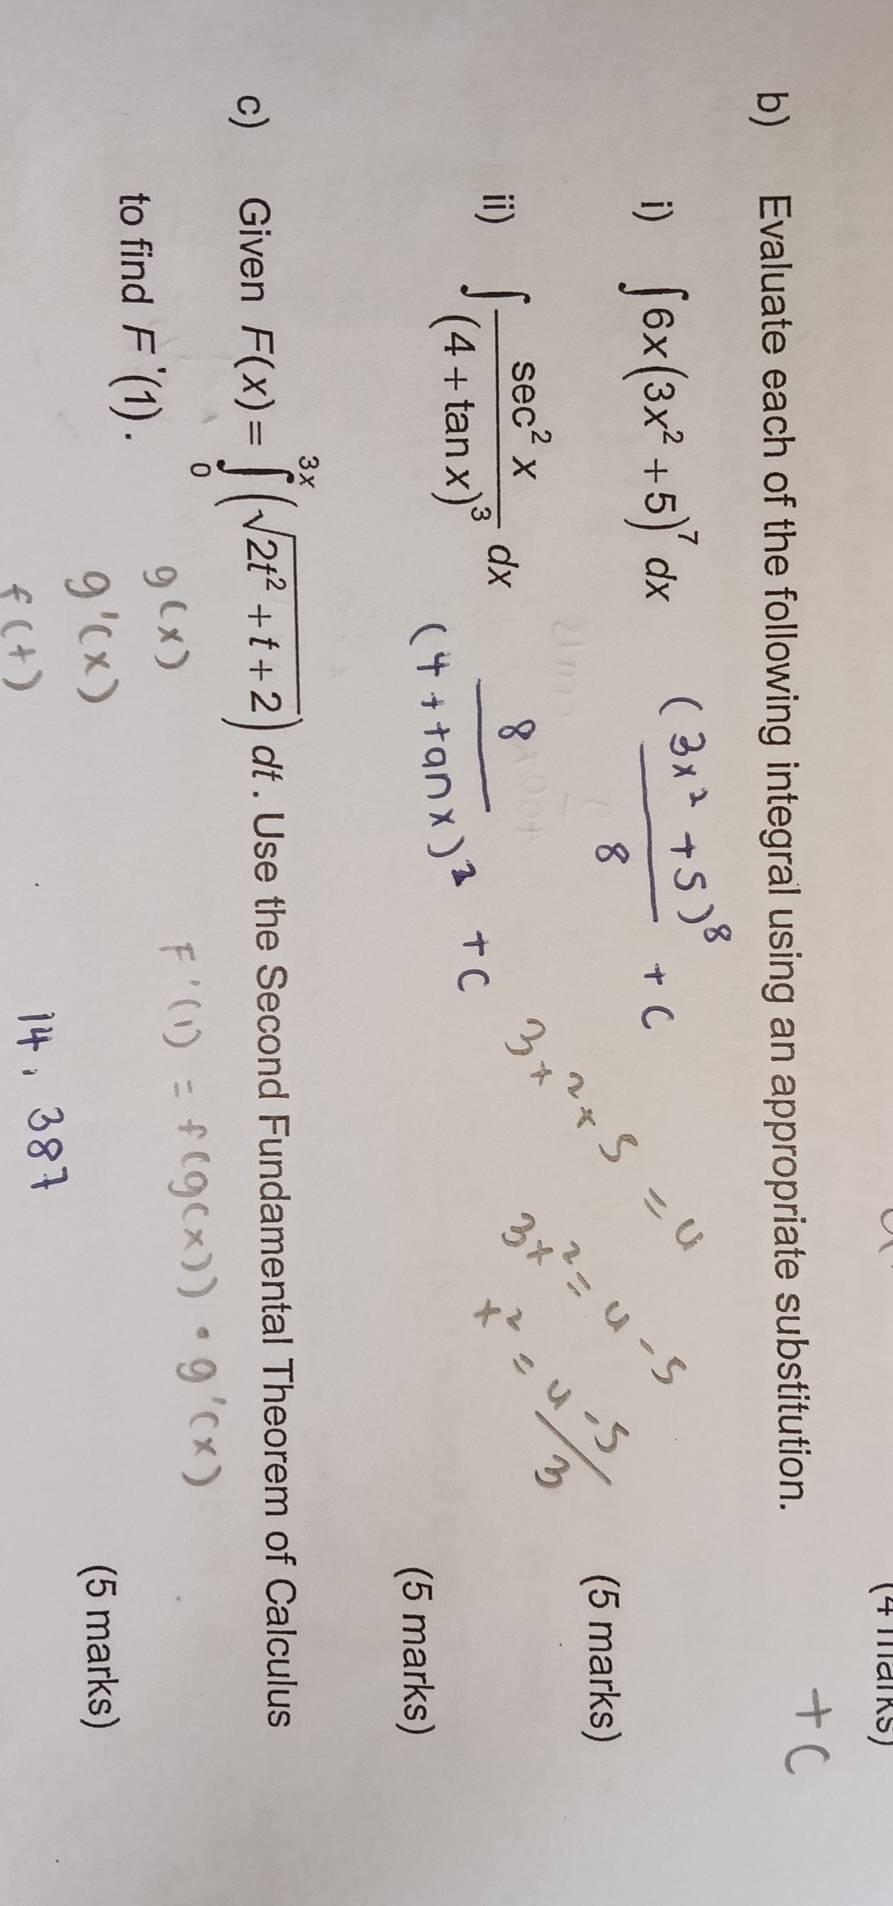 (4 marks)
+ C
b) Evaluate each of the following integral using an appropriate substitution.
i) ∫ 6x(3x² + 5)⁷ dx
(3x² + 5)⁸ / 8 + C
(5 marks)
3t² × 5 = u
3t² = u - 5
t² = u - 5 / 3
ii) ∫ sec² x / (4 + tan x)³ dx
8 / (4 + tan x)² + C
(5 marks)
c) Given F(x) = ∫₀³ˣ (√2t² + t + 2) dt . Use the Second Fundamental Theorem of Calculus
to find F'(1).
g(x)
F'(1) = f(g(x)) • g'(x)
g'(x)
(5 marks)
f(t)
14, 387